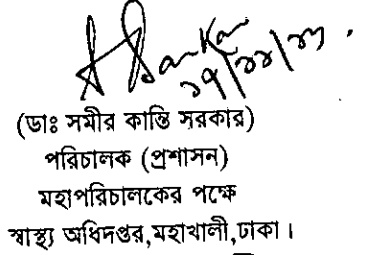 ১৭/১১/১৩.
(ডাঃ সমীর কান্তি সরকার)
পরিচালক (প্রশাসন)
মহাপরিচালকের পক্ষে
স্বাস্থ্য অধিদপ্তর,মহাখালী,ঢাকা।